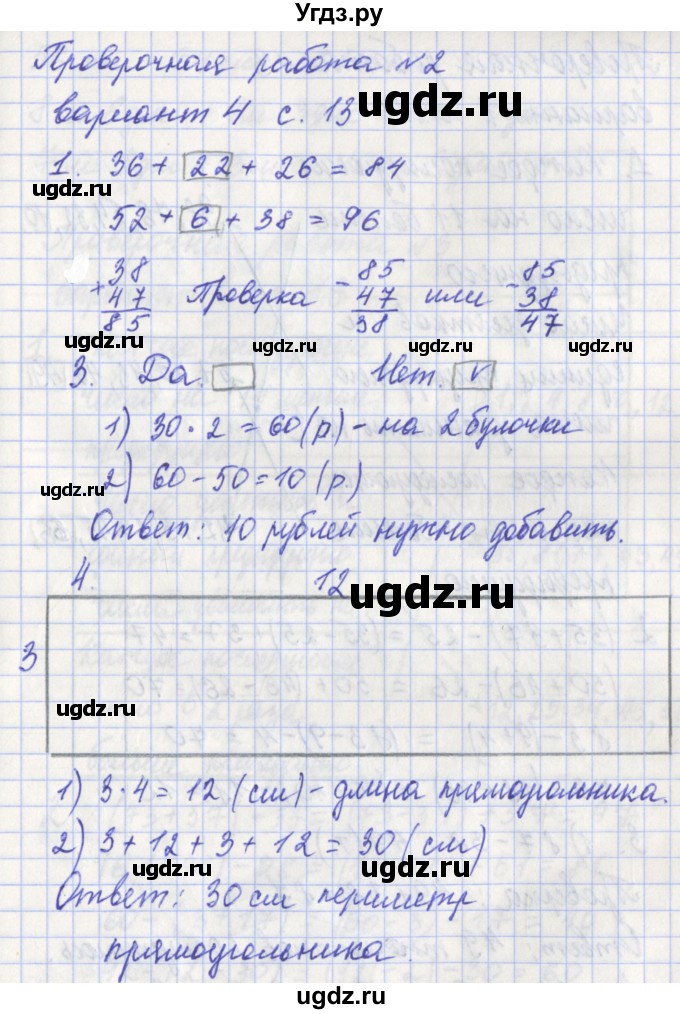 Угдз.ру
Проверочная работа №2
вариант 4 с. 13
ugdz.ru
1. 36 + 22 + 26 = 84
ugdz.ru
52 + 6 + 38 = 96
+ 38 47 85 Проверка - 85 47 38 или - 85 38 47
ugdz.ru ugdz.ru
3. Да. Нет. V
ugdz.ru
1) 30 · 2 = 60 (р.) - на 2 булочки
2) 60 - 50 = 10 (р.)
ugdz.ru
Ответ: 10 рублей нужно добавить.
4. 12
ugdz.ru
3
ugdz.ru
1) 3 · 4 = 12 (см) - длина прямоугольника.
2) 3 + 12 + 3 + 12 = 30 (см)
ugdz.ru ugdz.ru
Ответ: 30 см периметр
прямоугольника.
ugdz.ru
ugdz.ru